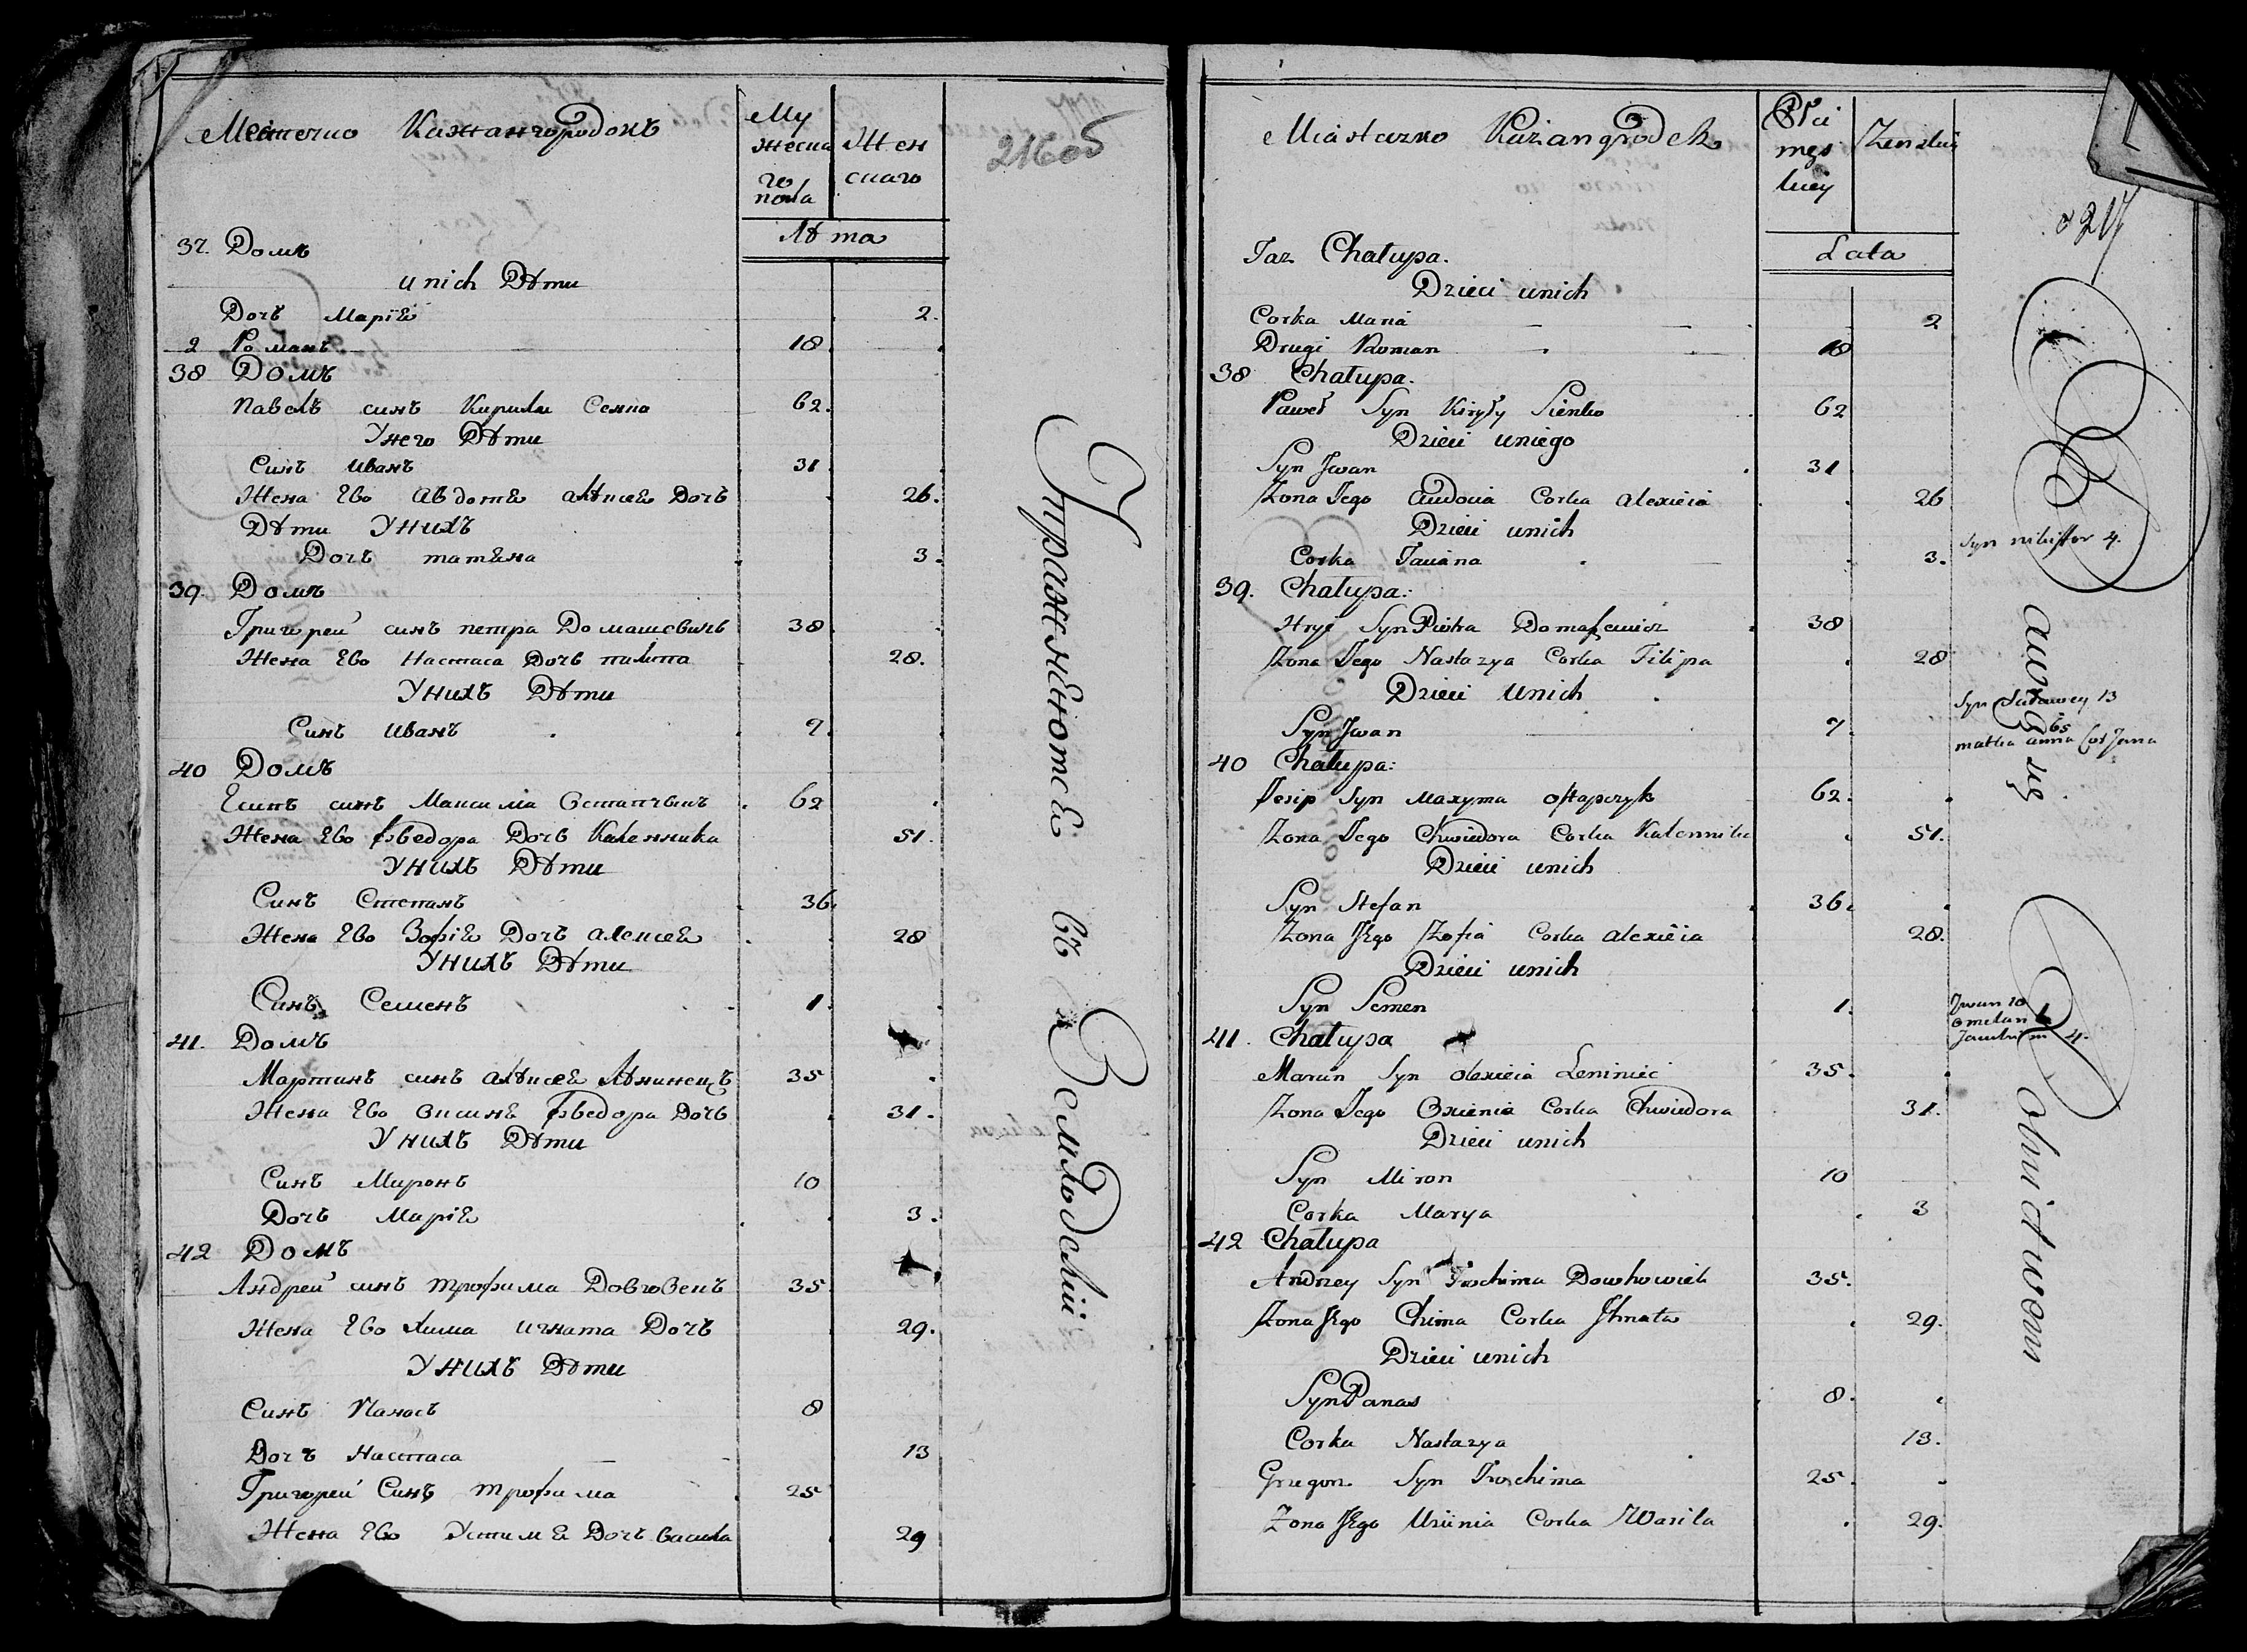 Местечко Кажангородокъ
Мужеска го пола
Женскаго
Лѣта
216об
37. Домъ
unich Дѣти
Дочь Марїя 2.
2 Романъ 18
38 Домъ
Павелъ синъ Кирилы Сенко 62.
Унего Дѣти
Синъ Иванъ 31
Жена Ево Авдотя алѣксея Дочь 26.
Дѣти Унихъ
Дочь татяна 3.
39. Домъ
Григорей синъ петра Домашевичъ 38
Жена Ево Настаса Дочь пилипа 28.
Унихъ Дѣти
Синъ Иванъ 7.
40 Домъ
Есипъ синъ Максима Остапчыкъ 62
Жена Ево Хведора Дочь Каленника 51.
Унихъ Дѣти
Синъ Степанъ 36.
Жена Ево Зофїя Дочь алексея 28
Унихъ Дѣти
Синъ Семенъ 1.
41. Домъ
Мартинъ синъ алѣксея Лѣнинецъ 35
Жена Ево Оксиня Хведора Дочь 31.
Унихъ Дѣти
Синъ Миронъ 10
Дочь Марїя 3.
42 Домъ
Андрей синъ трофима Довговекъ 35
Жена Ево Химa игната Дочь 29.
Унихъ Дѣти
Синъ Панасъ 8
Дочъ Настаса 13
Григорей Синъ трофима 25
Жена Ево Устимя Дочъ василя 29
въ
Miasteczko Każangrodek
Płci męskiey
Zenskiey
Lata
217
Taz Chałupa.
Dzieci unich
Corka Maria 2
Drugi Roman 18
38 Chałupa.
Paweł Syn Kiryły Sienko 62
Dzieci uniego
Syn Jwan 31
Zona Jego Audocia Corka Alexieia 26
Dzieci unich
Corka Taciana 3.
39. Chałupa:
Hryć Syn Piotra Domaszewicz 38
Zona Jego Nastazya Corka Filipa 28
Dzieci Unich
Syn Jwan 7.
40 Chałupa:
Jesip Syn Maxyma Ostapczyk 62.
Zona Jego Chwiedora Corka Kalennika 51.
Dzieci unich
Syn Stefan 36.
Zona Jego Zofia Corka alexieia 28.
Dzieci unich
Syn Semen 1.
41. Chałupa
Marcin Syn Alexieia Leniniec 35.
Zona Jego Oxienia Corka Chwiedora 31.
Dzieci unich
Syn Miron 10
Corka Marya 3
42 Chałupa
Andrzey Syn Trochima Dowhowiek 35.
Zona Jego Chima Corka Ihnata 29.
Dzieci unich
Syn Panas 8.
Corka Nastazya 13.
Grzegorz Syn Trochima 25.
Zona Jego Uscinia Corka Wasila 29.
Syn 4.
Syn 13
65
matka anna Cor
Jwan 10
omelan
4.